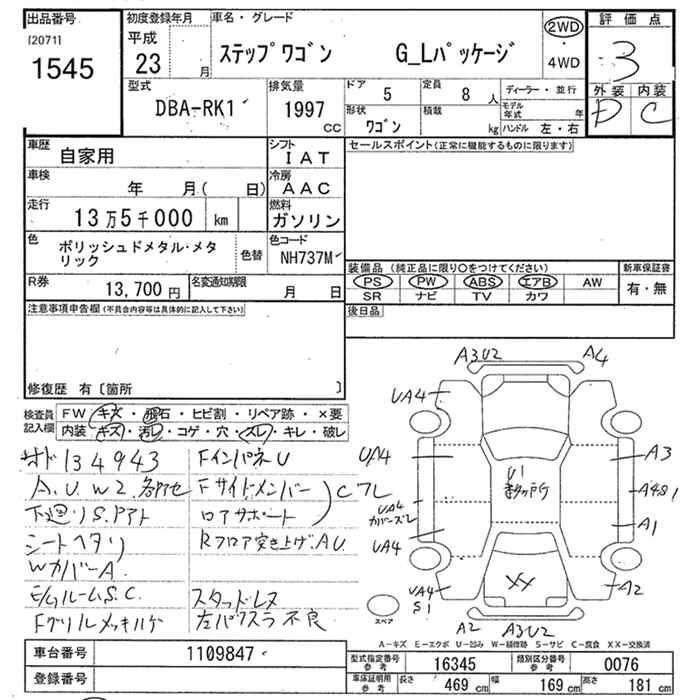 出品番号
[2071]
1545
初度登録年月
平成
23 月
車名・グレード
ステップワゴン G_Lパッケージ
2WD
・
4WD
評価点
3
外装 内装
D C
型式
DBA-RK1
排気量
1997
CC
ドア
5
定員
8 人
形状
ワゴン
積載
kg
ディーラー・並行
モデル年式 年
ハンドル 左・右
車歴
自家用
シフト
IAT
車検
年 月( 日)
冷房
AAC
走行
13万5千000 km
燃料
ガソリン
色
ポリッシュドメタル・メタ
リック
色替
色コード
NH737M
R券
13,700 円
名変通知期限
月 日
セールスポイント(正常に機能するものに限ります)
装備品 (純正品に限り〇をつけてください)
PS PW ABS エアB AW
SR ナビ TV カワ
新車保証書
有・無
後日品
注意事項申告欄(不具合内容等は具体的に記入して下さい)
修復歴 有〔箇所 〕
検査員
記入欄
FW キズ・飛石・ヒビ割・リペア跡・×要
内装 キズ・汚レ・コゲ・穴・スレ・キレ・破レ
134943
A.U.W2.各所
下廻りS.
シートヘタリ
WカバーA.
E/gルームS.C.
Fグリルメッキハゲ
FインパネU
Fサイドメンバー
ロアサポート
Cフレ
Rフロア突き上げ.A.U.
スタッドレス
左パワスラ不良
A3U2
A4
UA4
U/A4
UA4
カバーズレ
UA4
UA4
S1
U1
多数ヶ所
A3
A4S1
A1
A2
XX
A2
A3U2
スペア
A-キズ E-エクボ U-凹み W-補修跡 S-サビ C-腐食 XX-交換済
車台番号
1109847
登録番号
型式指定番号
参考
16345
類別区分番号
参考
0076
車庫証明用
参考
長さ
469 cm
幅
169 cm
高さ
181 cm